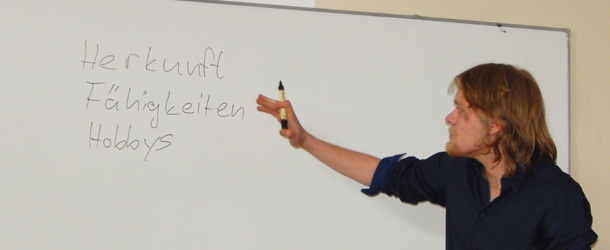 Herkunft
Fähigkeiten
Hobbys